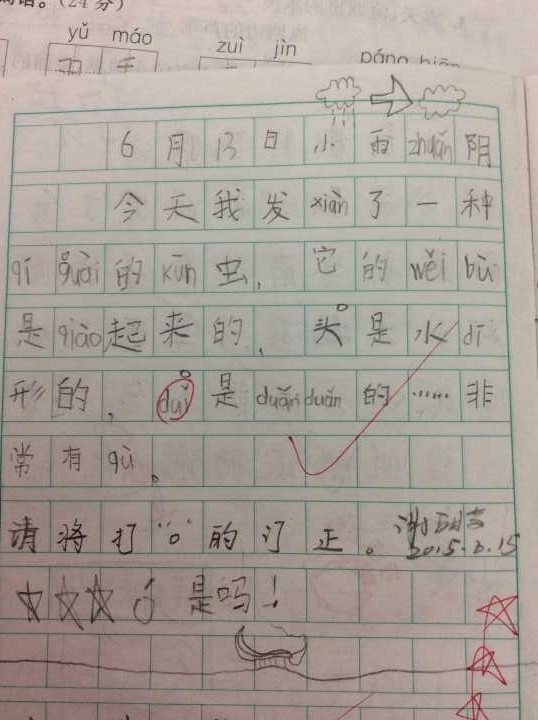 yǔ máo zuì jìn
6月13日小雨zhuǎn阴
今天我发xiàn了一种
qí guài的kūn虫，它的wěi bù
是qiào起来的，头是水dī
形的，duǐ是duǎnduǎn的……非
常有qù。
请将打“o”的订正。
是吗！